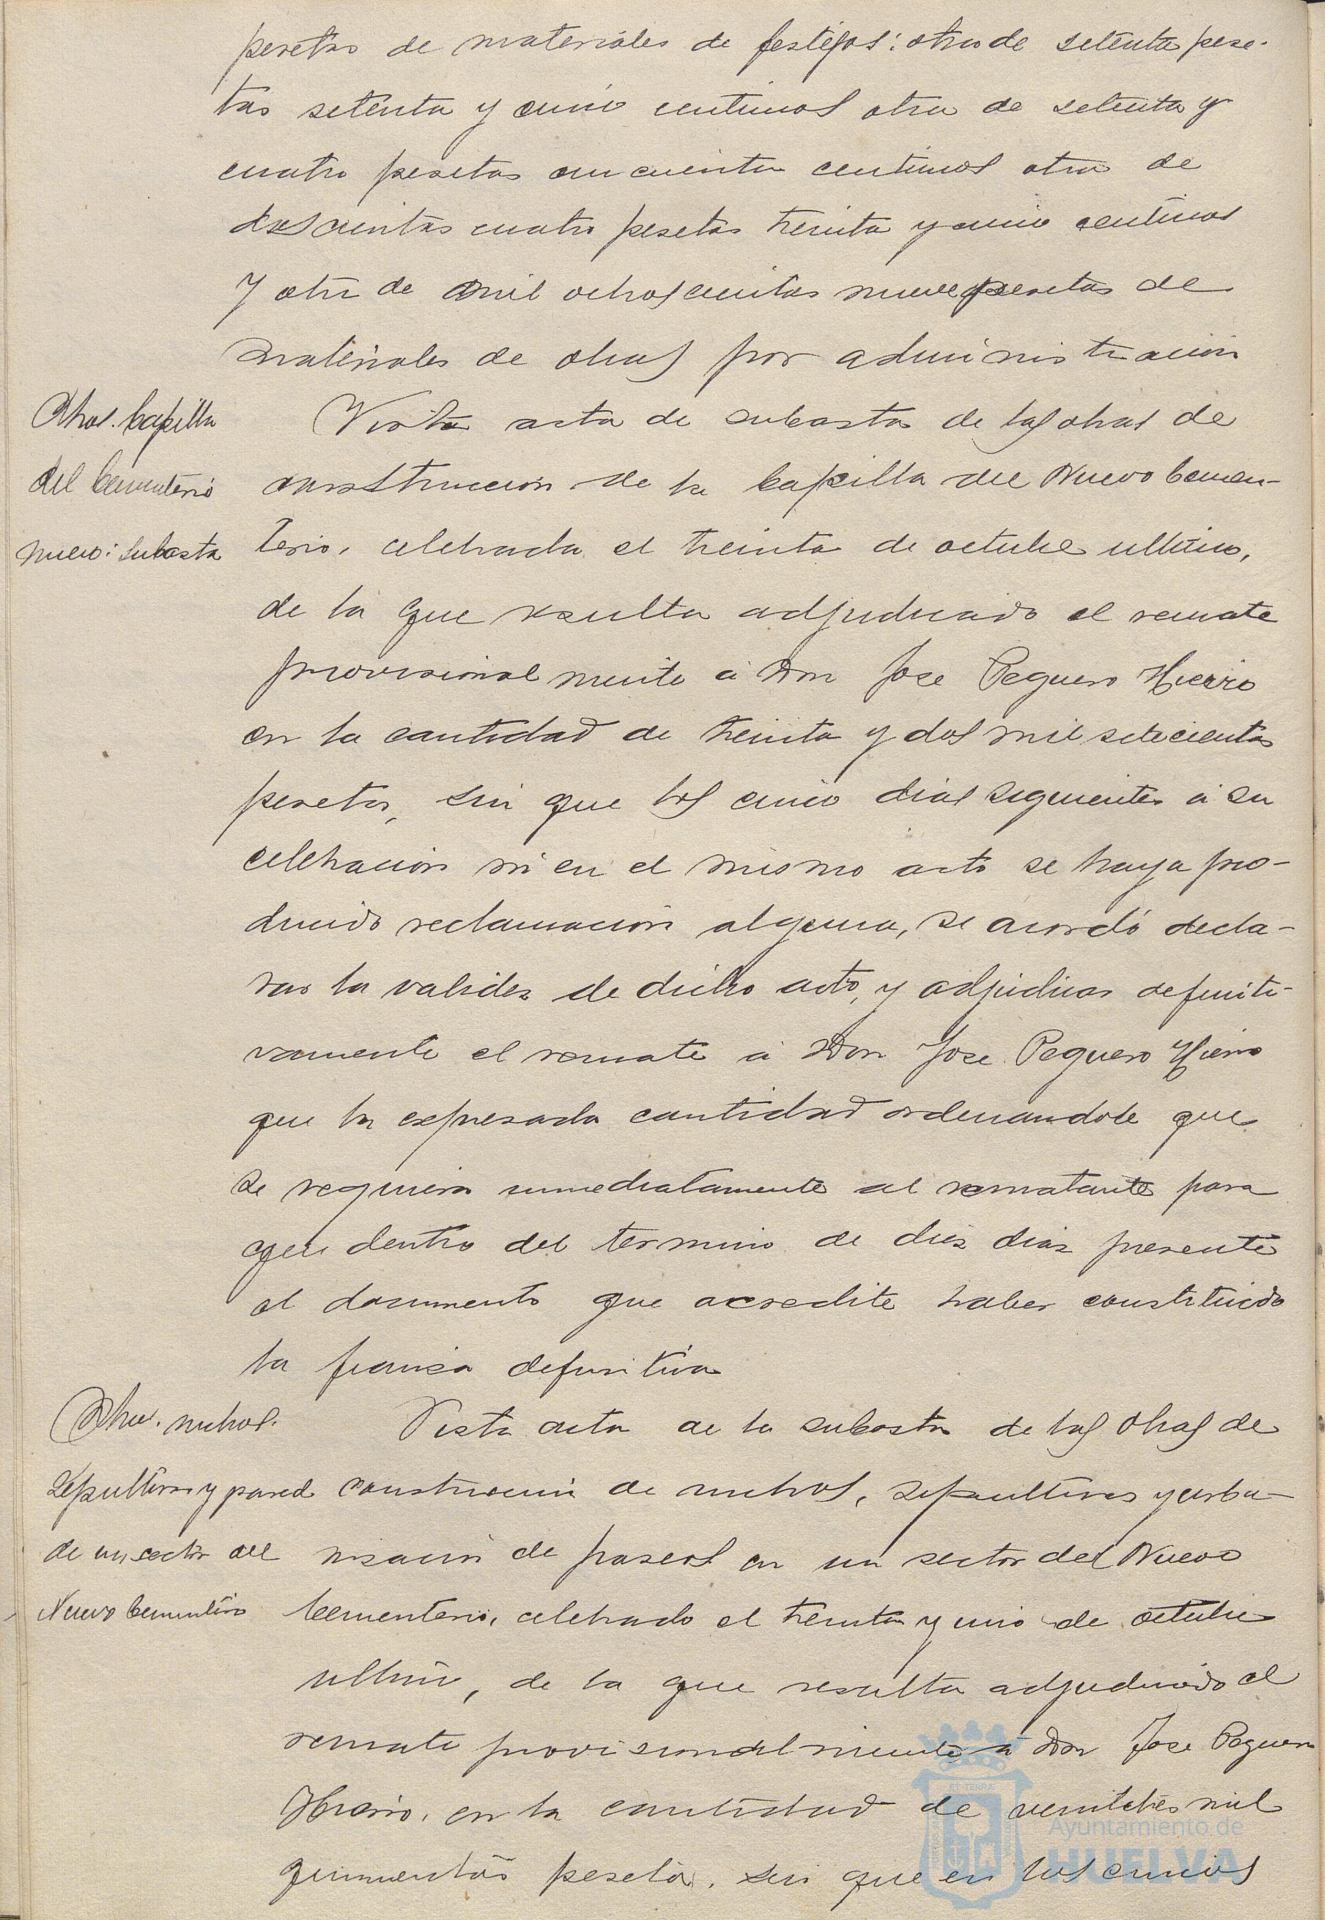 pesetas de materiales de festejos: otra de setenta pese-
tas setenta y cinco centimos otra de setenta y
cuatro pesetas cincuenta centimos otra de
doscientas cuatro pesetas treinta y cinco centimos
y otra de mil ochoscientas nueve pesetas de
materiales de obras por administración
Obras. Capilla
del Cementerio
nuevo: subasta
Vista acta de subasta de las obras de
construcción de la Capilla del Nuevo Cemen-
terio, celebrada el treinta de octubre ultimo,
de la que resulta adjudicado el remate
provisionalmente á Don Jose Peguero Hierro
en la cantidad de treinta y dos mil setecientas
pesetas, sin que los cinco dias siguientes á su
celebración ni en el mismo acto se haya pro-
ducido reclamación alguna, se acordó decla-
rar la validez de dicho acto, y adjudicar definiti-
vamente el remate á Don Jose Peguero Hierro
que la expresada cantidad ordenandole que
se requiera inmediatamente al rematante para
que dentro del termino de diez dias presente
el documento que acredite haber constituido
la fianza definitiva
Obras. nichos.
Sepulturas y pared
de un sector del
Nuevo Cementerio
Vista acta de la subasta de las obras de
construcción de nichos, sepulturas y urba-
nización de paseos en un sector del Nuevo
Cementerio, celebrado el treinta y uno de octubre
ultimo, de la que resulta adjudicado el
remate provisionalmente á Don Jose Peguero
Hierro, en la cantidad de veintitres mil
quinientas pesetas, sin que en los cinco
Ayuntamiento de
HUELVA